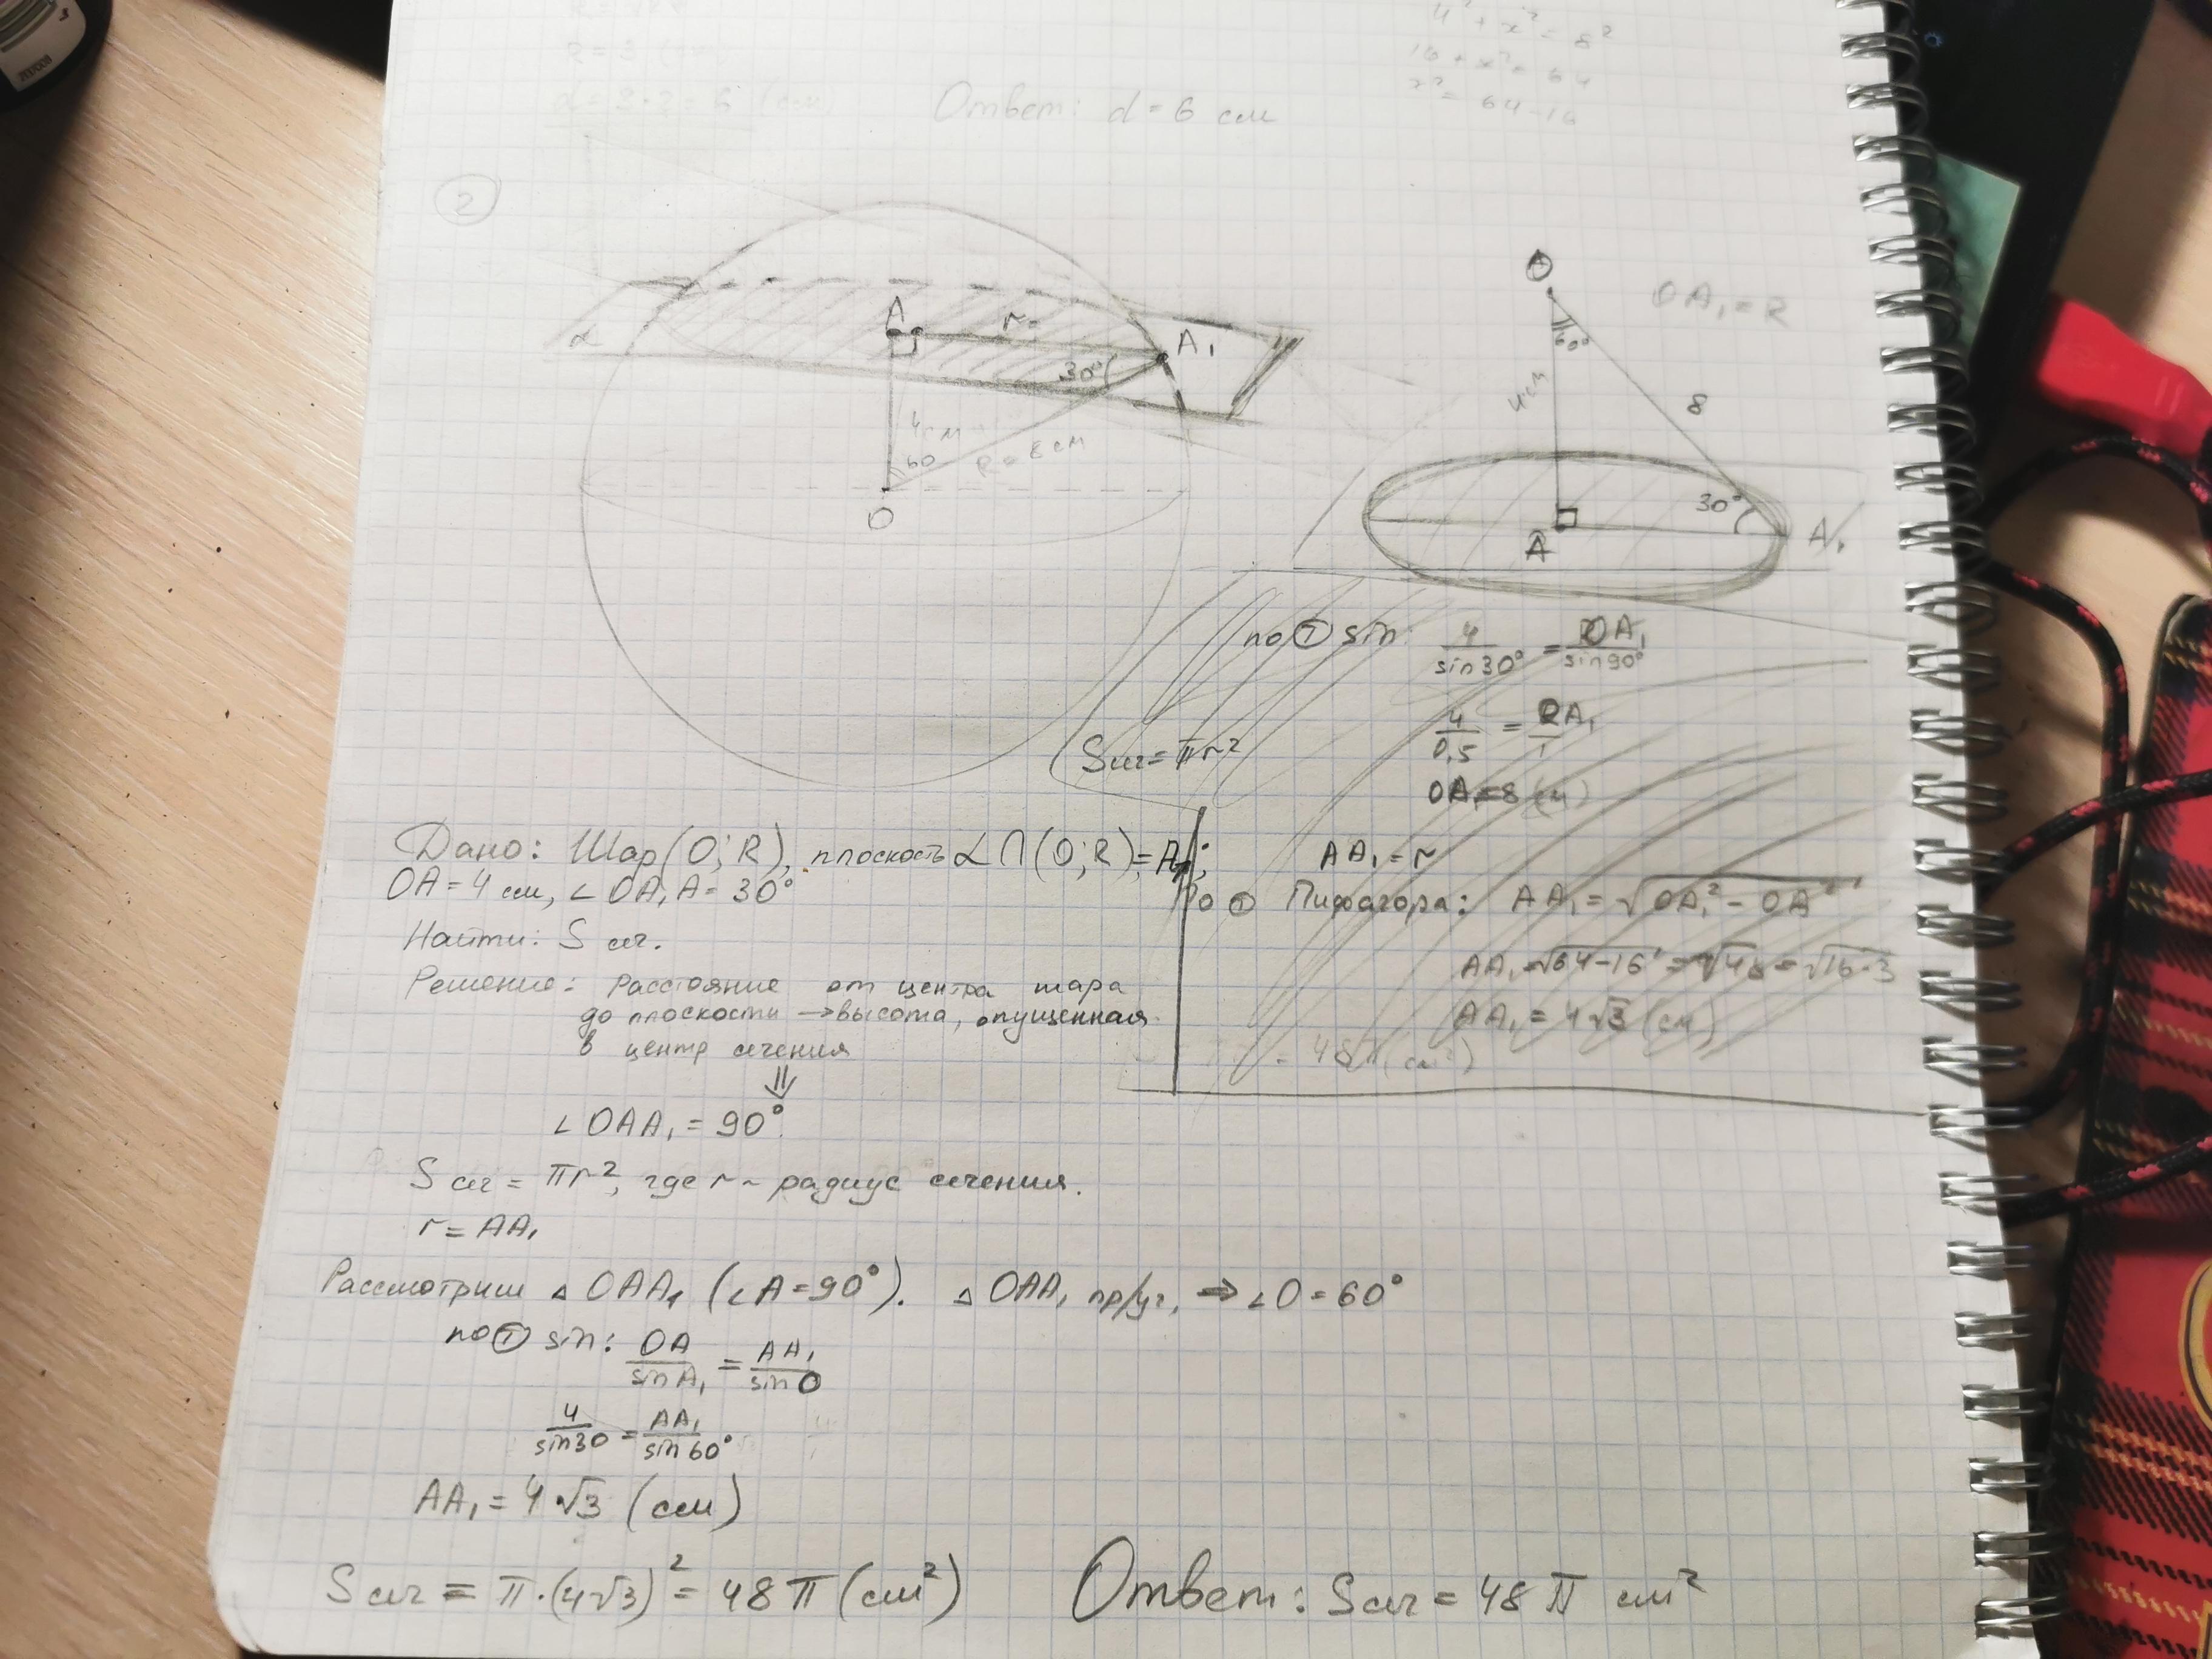 4² + x² = 8²
16 + x² = 64
x² = 64 - 16
d = 3 · 2 = 6 (см)
Ответ: d = 6 см
2
α
A
r
A₁
30°
4 см
60
R = 8 см
O
O
OA₁ = R
60°
4 см
8
30°
A
A₁
по Т sin: 4/sin30° = OA₁/sin90°
4/0,5 = OA₁/1
OA₁ = 8 (см)
Sсеч = πr²
AA₁ = r
По Т Пифагора: AA₁ = √OA₁² - OA²
AA₁ = √64-16 = √48 = √16·3
AA₁ = 4√3 (см)
= 48π (см²)
Дано: Шар (O; R), плоскость α ∩ (O; R) = A₁;
OA = 4 см, ∠OA₁A = 30°
Найти: S сеч.
Решение: Расстояние от центра шара
до плоскости → высота, опущенная
в центр сечения
⇓
∠OAA₁ = 90°.
S сеч = πr², где r - радиус сечения.
r = AA₁
Рассмотрим ▵ OAA₁ (∠A = 90°). ▵ OAA₁ пр/уг, ⇒ ∠O = 60°
по Т sin: OA/sinA₁ = AA₁/sinO
4/sin30 = AA₁/sin60°
AA₁ = 4√3 (см)
S сеч = π·(4√3)² = 48π (см²)
Ответ: Sсеч = 48π см²